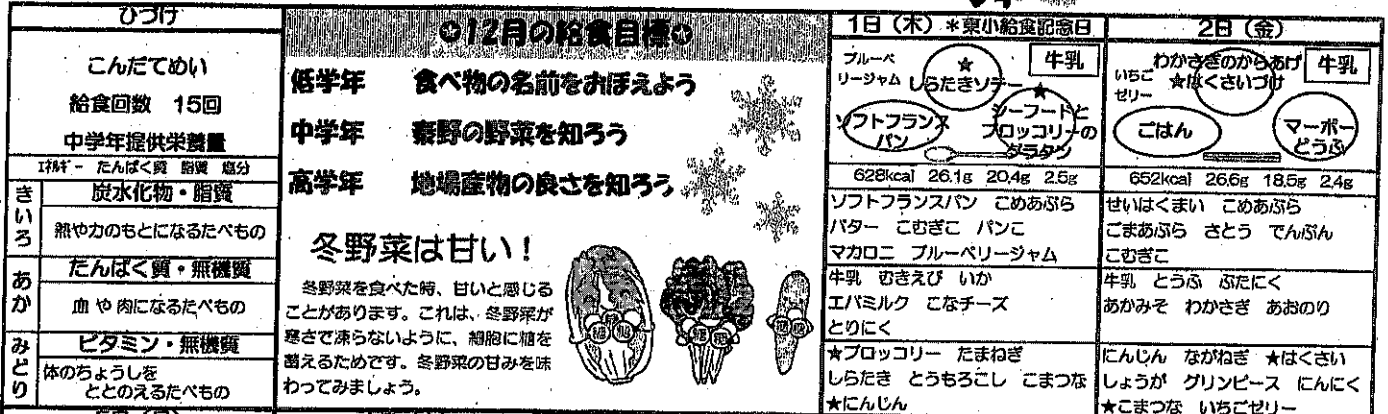 ひづけ
こんだてめい
給食回数 15回
中学年提供栄養量
エネルギー たんぱく質 脂質 塩分
きいろ
炭水化物・脂質
熱や力のもとになるたべもの
あか
たんぱく質・無機質
血や肉になるたべもの
みどり
ビタミン・無機質
体のちょうしを
ととのえるたべもの
✪12月の給食目標✪
低学年 食べ物の名前をおぼえよう
中学年 秦野の野菜を知ろう
高学年 地場産物の良さを知ろう
冬野菜は甘い！
冬野菜を食べた時、甘いと感じる
ことがあります。これは、冬野菜が
寒さで凍らないように、細胞に糖を
蓄えるためです。冬野菜の甘みを味
わってみましょう。
糖 糖 糖
糖 糖 糖
糖 糖
1日（木）＊東小給食記念日
ブルーベ
リージャム
★
しらたきソテー
牛乳
ソフトフランス
パン
★
シーフードと
ブロッコリーの
グラタン
628kcal 26.1g 20.4g 2.5g
ソフトフランスパン こめあぶら
バター こむぎこ パンこ
マカロニ ブルーベリージャム
牛乳 むきえび いか
エバミルク こなチーズ
とりにく
★ブロッコリー たまねぎ
しらたき とうもろこし こまつな
★にんじん
2日（金）
いちご
ゼリー
わかさぎのからあげ
★はくさいづけ
牛乳
ごはん
マーボー
どうふ
652kcal 26.6g 18.5g 2.4g
せいはくまい こめあぶら
ごまあぶら さとう でんぷん
こむぎこ
牛乳 とうふ ぶたにく
あかみそ わかさぎ あおのり
にんじん ながねぎ ★はくさい
しょうが グリンピース にんにく
★こまつな いちごゼリー